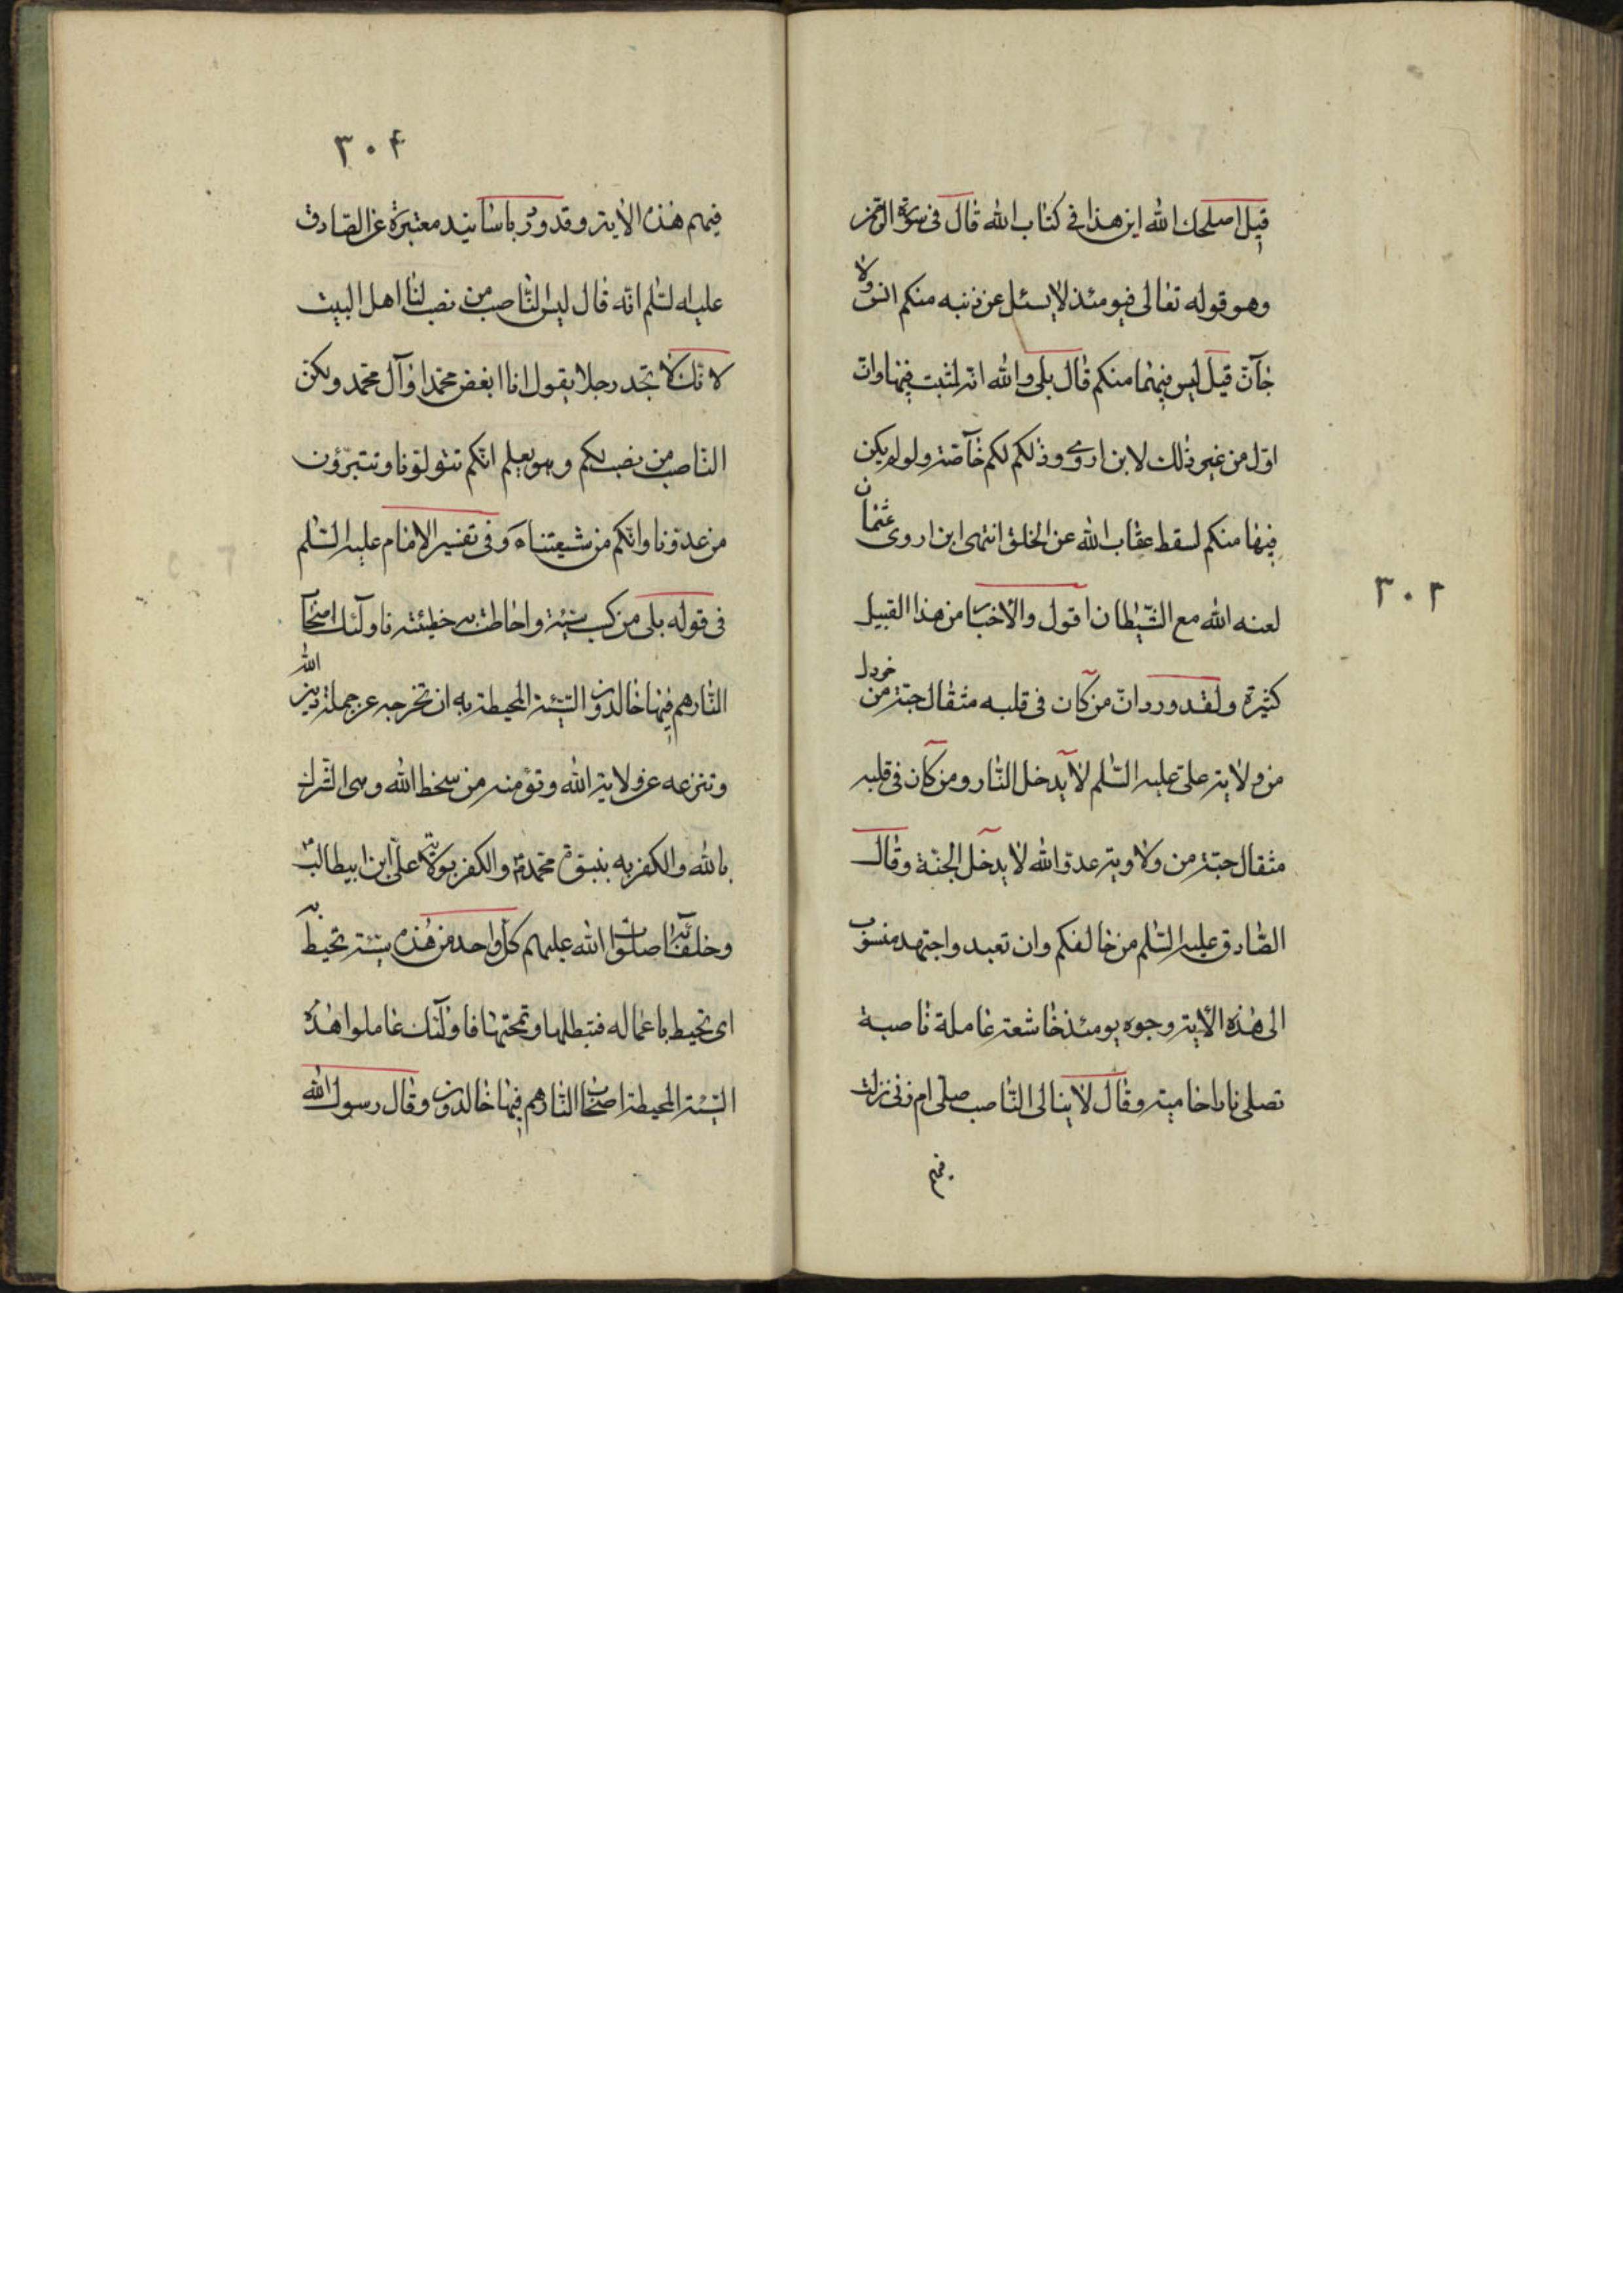 قيل اصلحك الله اين هذا فى كتاب الله قال فى سورة الرحمن
وهو قوله تعالى فيومئذ لا يسئل عن ذنبه منكم انس ولا
جآنّ قيل ليس فيهما منكم قال بلى والله انه لمثبت فيها وانّ
اوّل من غير ذلك لابن اروى وذلكم لكم خآصّة ولو لم يكن
فيها منكم لسقط عقاب الله عن الخلق انتهى ابن اروى عثمان
لعنه الله مع الشّيطان اقول والاخبار من هذا القبيل
كثيرة ولقد ورد انّ من كان فى قلبه مثقال حبّة من خردل
من ولاية علىّ عليه السّلم لا يدخل النّار ومن كان فى قلبه
مثقال حبّة من ولاوية عدوّ الله لا يدخل الجنّة وقال
الصّادق عليه السّلم من خالفكم وان تعبد واجتهد منسوب
الى هذه الآية وجوه يومئذ خاشعة عاملة ناصبة
تصلى نارا حامية وقال لا يبالى النّاصب صلّى ام زنى نزلت
فيهم
٣٠٣
٣٠۴
فيهم هذه الآية وقد ورد باسانيد معتبرة عن الصّادق
عليه السّلم انّه قال ليس النّاصب من نصب لنا اهل البيت
لانّك لا تجد رجلا يقول انا ابغض محمّدا وآل محمّد ولكنّ
النّاصب من نصب لكم وهو يعلم انّكم تتولّونا وتتبرّؤن
من عدوّنا وانّكم من شيعتنا وفى تفسير الامام عليه السّلم
فى قوله بلى من كسب سيّئة واحاطت به خطيئته فاولئك اصحاب
النّار هم فيها خالدون السّيّئة المحيطة به ان تخرجه عن جملة دين الله
وتنزعه عن ولاية الله وتؤمنه من سخط الله وهى الشّرك
بالله والكفر به بنبوّة محمّد ص والكفر بولاية علىّ ابن ابيطالب
وخلفائه صلوات الله عليهم كلّ واحد من هذه سيّئة تحيط به
اى تحيط باعماله فتبطلها وتمحتها فاولئك عاملوا هذه
السّيّئة المحيطة اصحاب النّار هم فيها خالدون وقال رسول الله